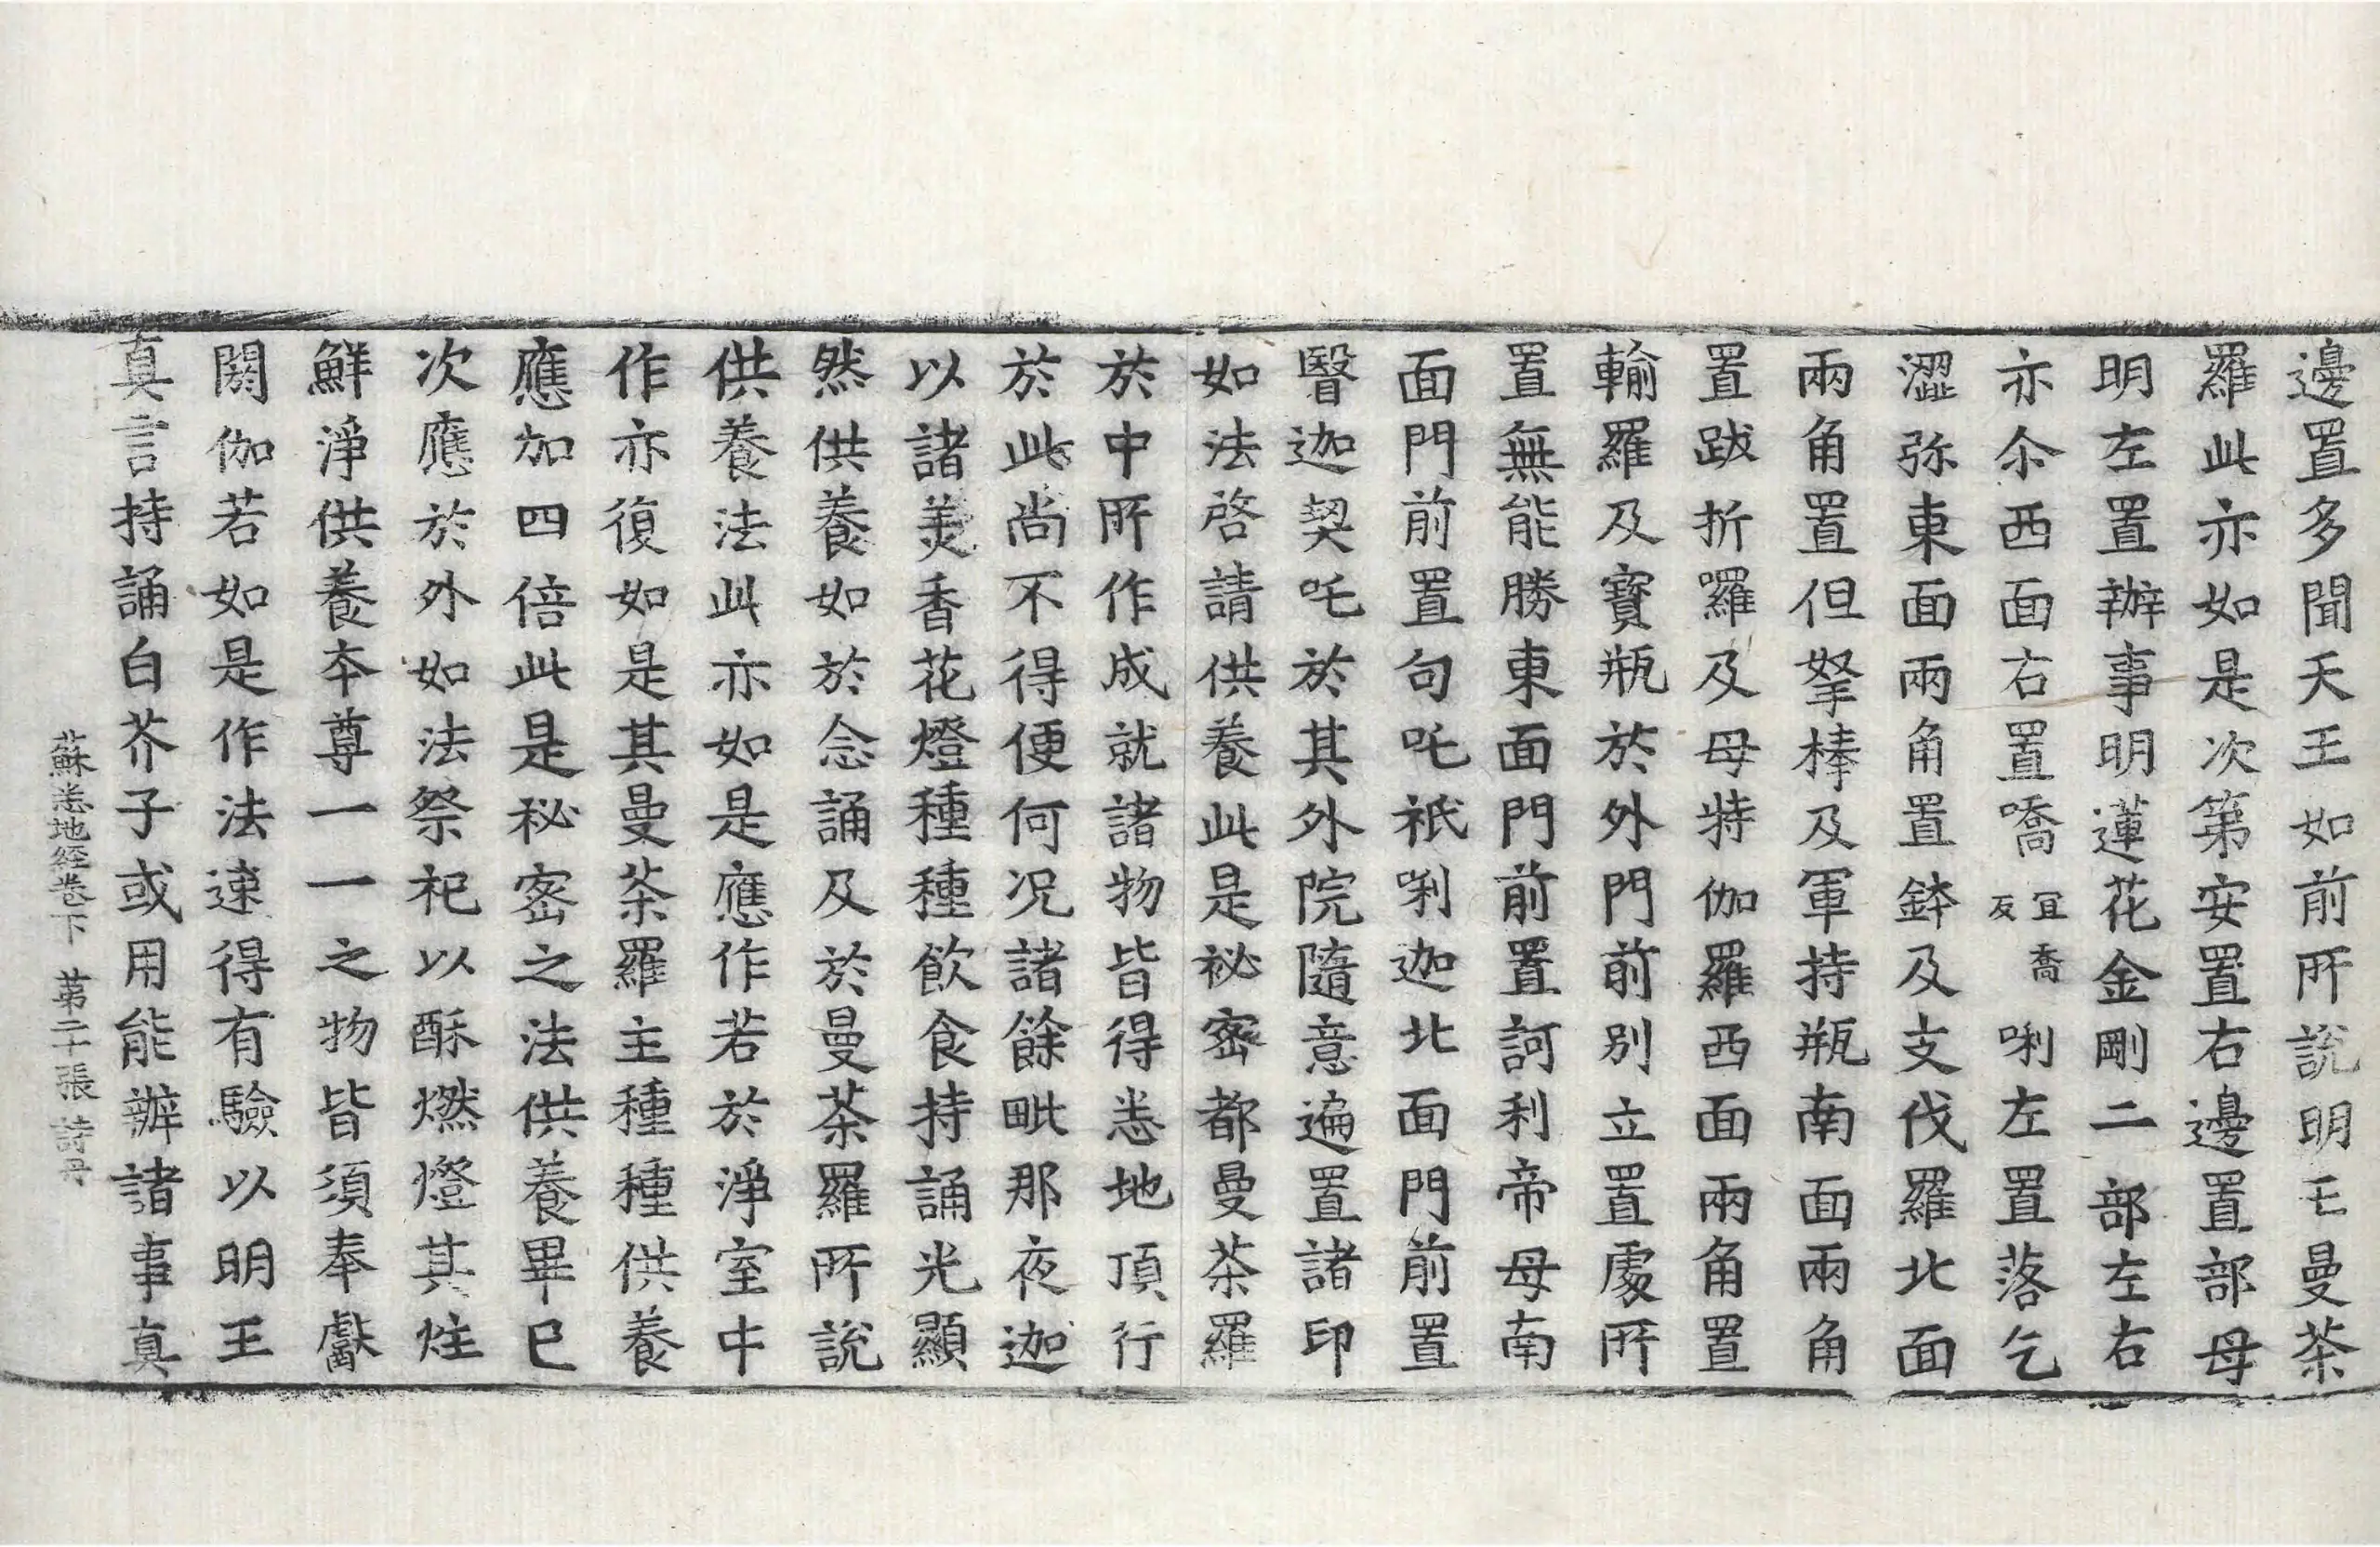 邊置多聞天王如前所說明王曼荼
羅此亦如是次第安置右邊置部母
明左置辦事明蓮花金剛二部左右
亦尒西面右置喬宜喬反唎左置落乞
澀弥東面兩角置鉢及支伐羅北面
兩角置但拏棒及軍持瓶南面兩角
置跋折囉及母特伽羅西面兩角置
輸羅及寶瓶於外門前別立置處所
置無能勝東面門前置訶利帝母南
面門前置句吒祇唎迦北面門前置
翳迦契吒於其外院隨意遍置諸印
如法啓請供養此是祕密都曼荼羅
於中所作成就諸物皆得悉地頂行
於此尚不得便何况諸餘毗那夜迦
以諸美香花燈種種飲食持誦光顯
然供養如於念誦及於曼荼羅所說
供養法此亦如是應作若於淨室中
作亦復如是其曼荼羅主種種供養
應加四倍此是秘密之法供養畢已
次應於外如法祭祀以酥燃燈其炷
鮮淨供養本尊一一之物皆須奉獻
閼伽若如是作法速得有驗以明王
真言持誦白芥子或用能辦諸事真
蘇悉地経卷下 第二十張 詩